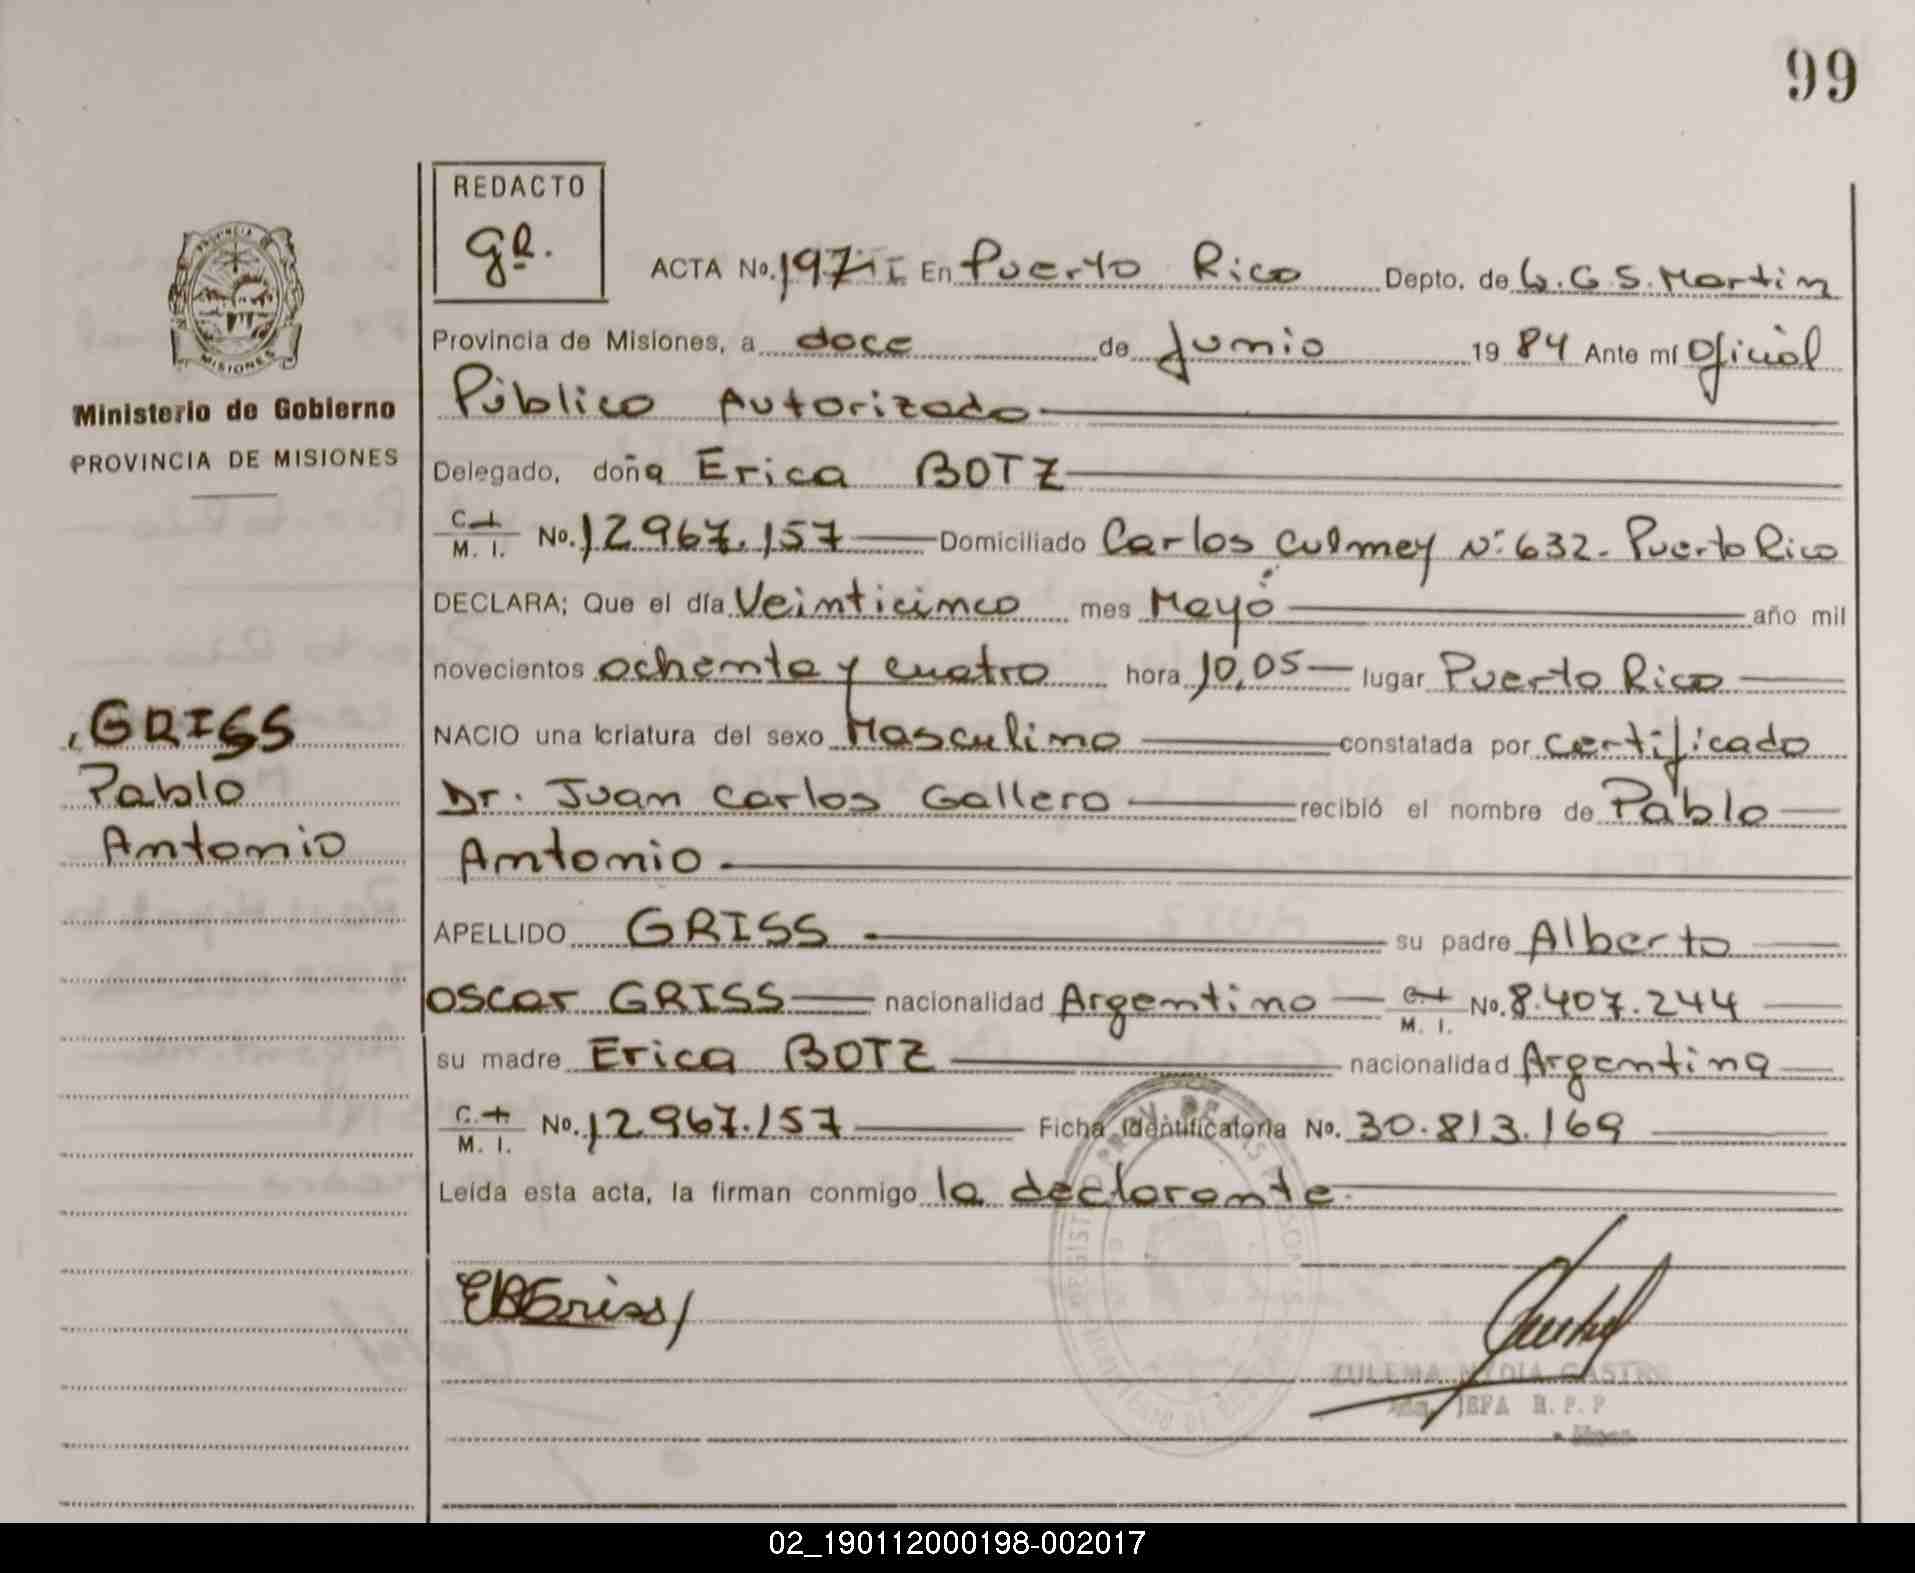 99
REDACTO
gR.
ACTA No. 197 I En Puerto Rico Depto. de L. G. S. Martin
Provincia de Misiones, a doce de Junio 1984 Ante mí Oficial
Público Autorizado
Ministerio de Gobierno
PROVINCIA DE MISIONES
Delegado, doña Erica BOTZ
C. I. M. I. No. 12967.157 Domiciliado Carlos Culmey Nº 632 - Puerto Rico
DECLARA; Que el día Veinticinco mes Mayo año mil
novecientos ochenta y cuatro hora 10,05 lugar Puerto Rico
GRISS
Pablo
Antonio
NACIO una criatura del sexo Masculino constatada por certificado
Dr. Juan Carlos Gallero recibió el nombre de Pablo
Antonio
APELLIDO GRISS su padre Alberto
Oscar GRISS nacionalidad Argentino C.I. M. I. No. 8.407.244
su madre Erica BOTZ nacionalidad Argentina
C. I. M. I. No. 12.967.157 Ficha Identificatoria No. 30.813.169
Leída esta acta, la firman conmigo la declarante.
EBGriss
ZULEMA NYDIA CASTRO
JEFA R. P. P
02_190112000198-002017